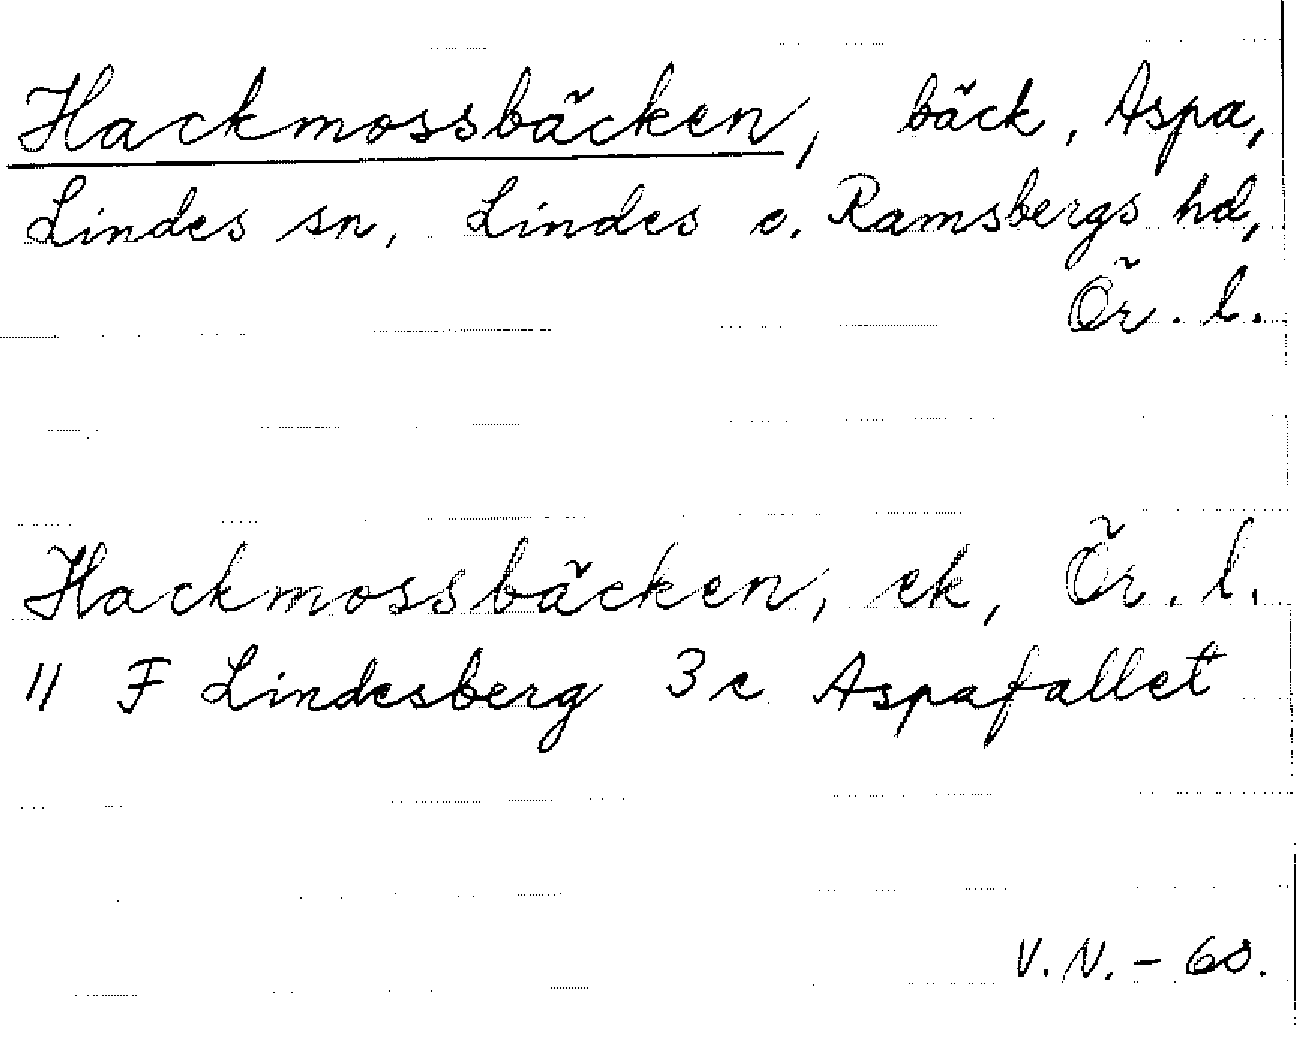 Hackmossbäcken, bäck, Aspa,
Lindes sn, Lindes o. Ramsbergs hd,
Ör. l.
Hackmossbäcken, ek, Ör. l.
11 F Lindesberg 3c Aspafallet
V.N. - 60.